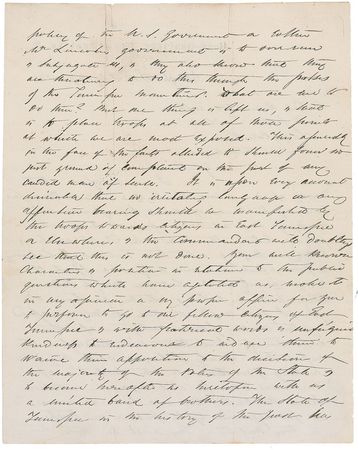 policy of the U. S. Government or rather
Mr Lincolns government is to overrun
& subjugate us, & they also know that they
are threatening to do this through the passes
of this Tennessee mountains. What are we to
do then? But one thing is left us, & that
is to place troops at all of those points
at which we are most exposed. This apparently
in the face of the facts alluded to should form no
just ground of complaint on the part of any
candid man of sense. It is upon every account
desirable that no irritating language or any
offensive bearing should be manifested by
the troops towards citizens in East Tennessee
or elsewhere, & the commandant will doubtless
see that this is not done. Your well known
character & position in relation to the public
questions which have agitated us, makes it
in my opinion a very proper affair for you
to go to our fellow citizens of East
Tennessee & with fraternal words &
kindness to endeavour to induce them to
waive their opposition to the decision of
the majority of the voters of the State &
to become hereafter as heretofore with us
a united band of brothers. The State of
Tennessee in the history of the past has